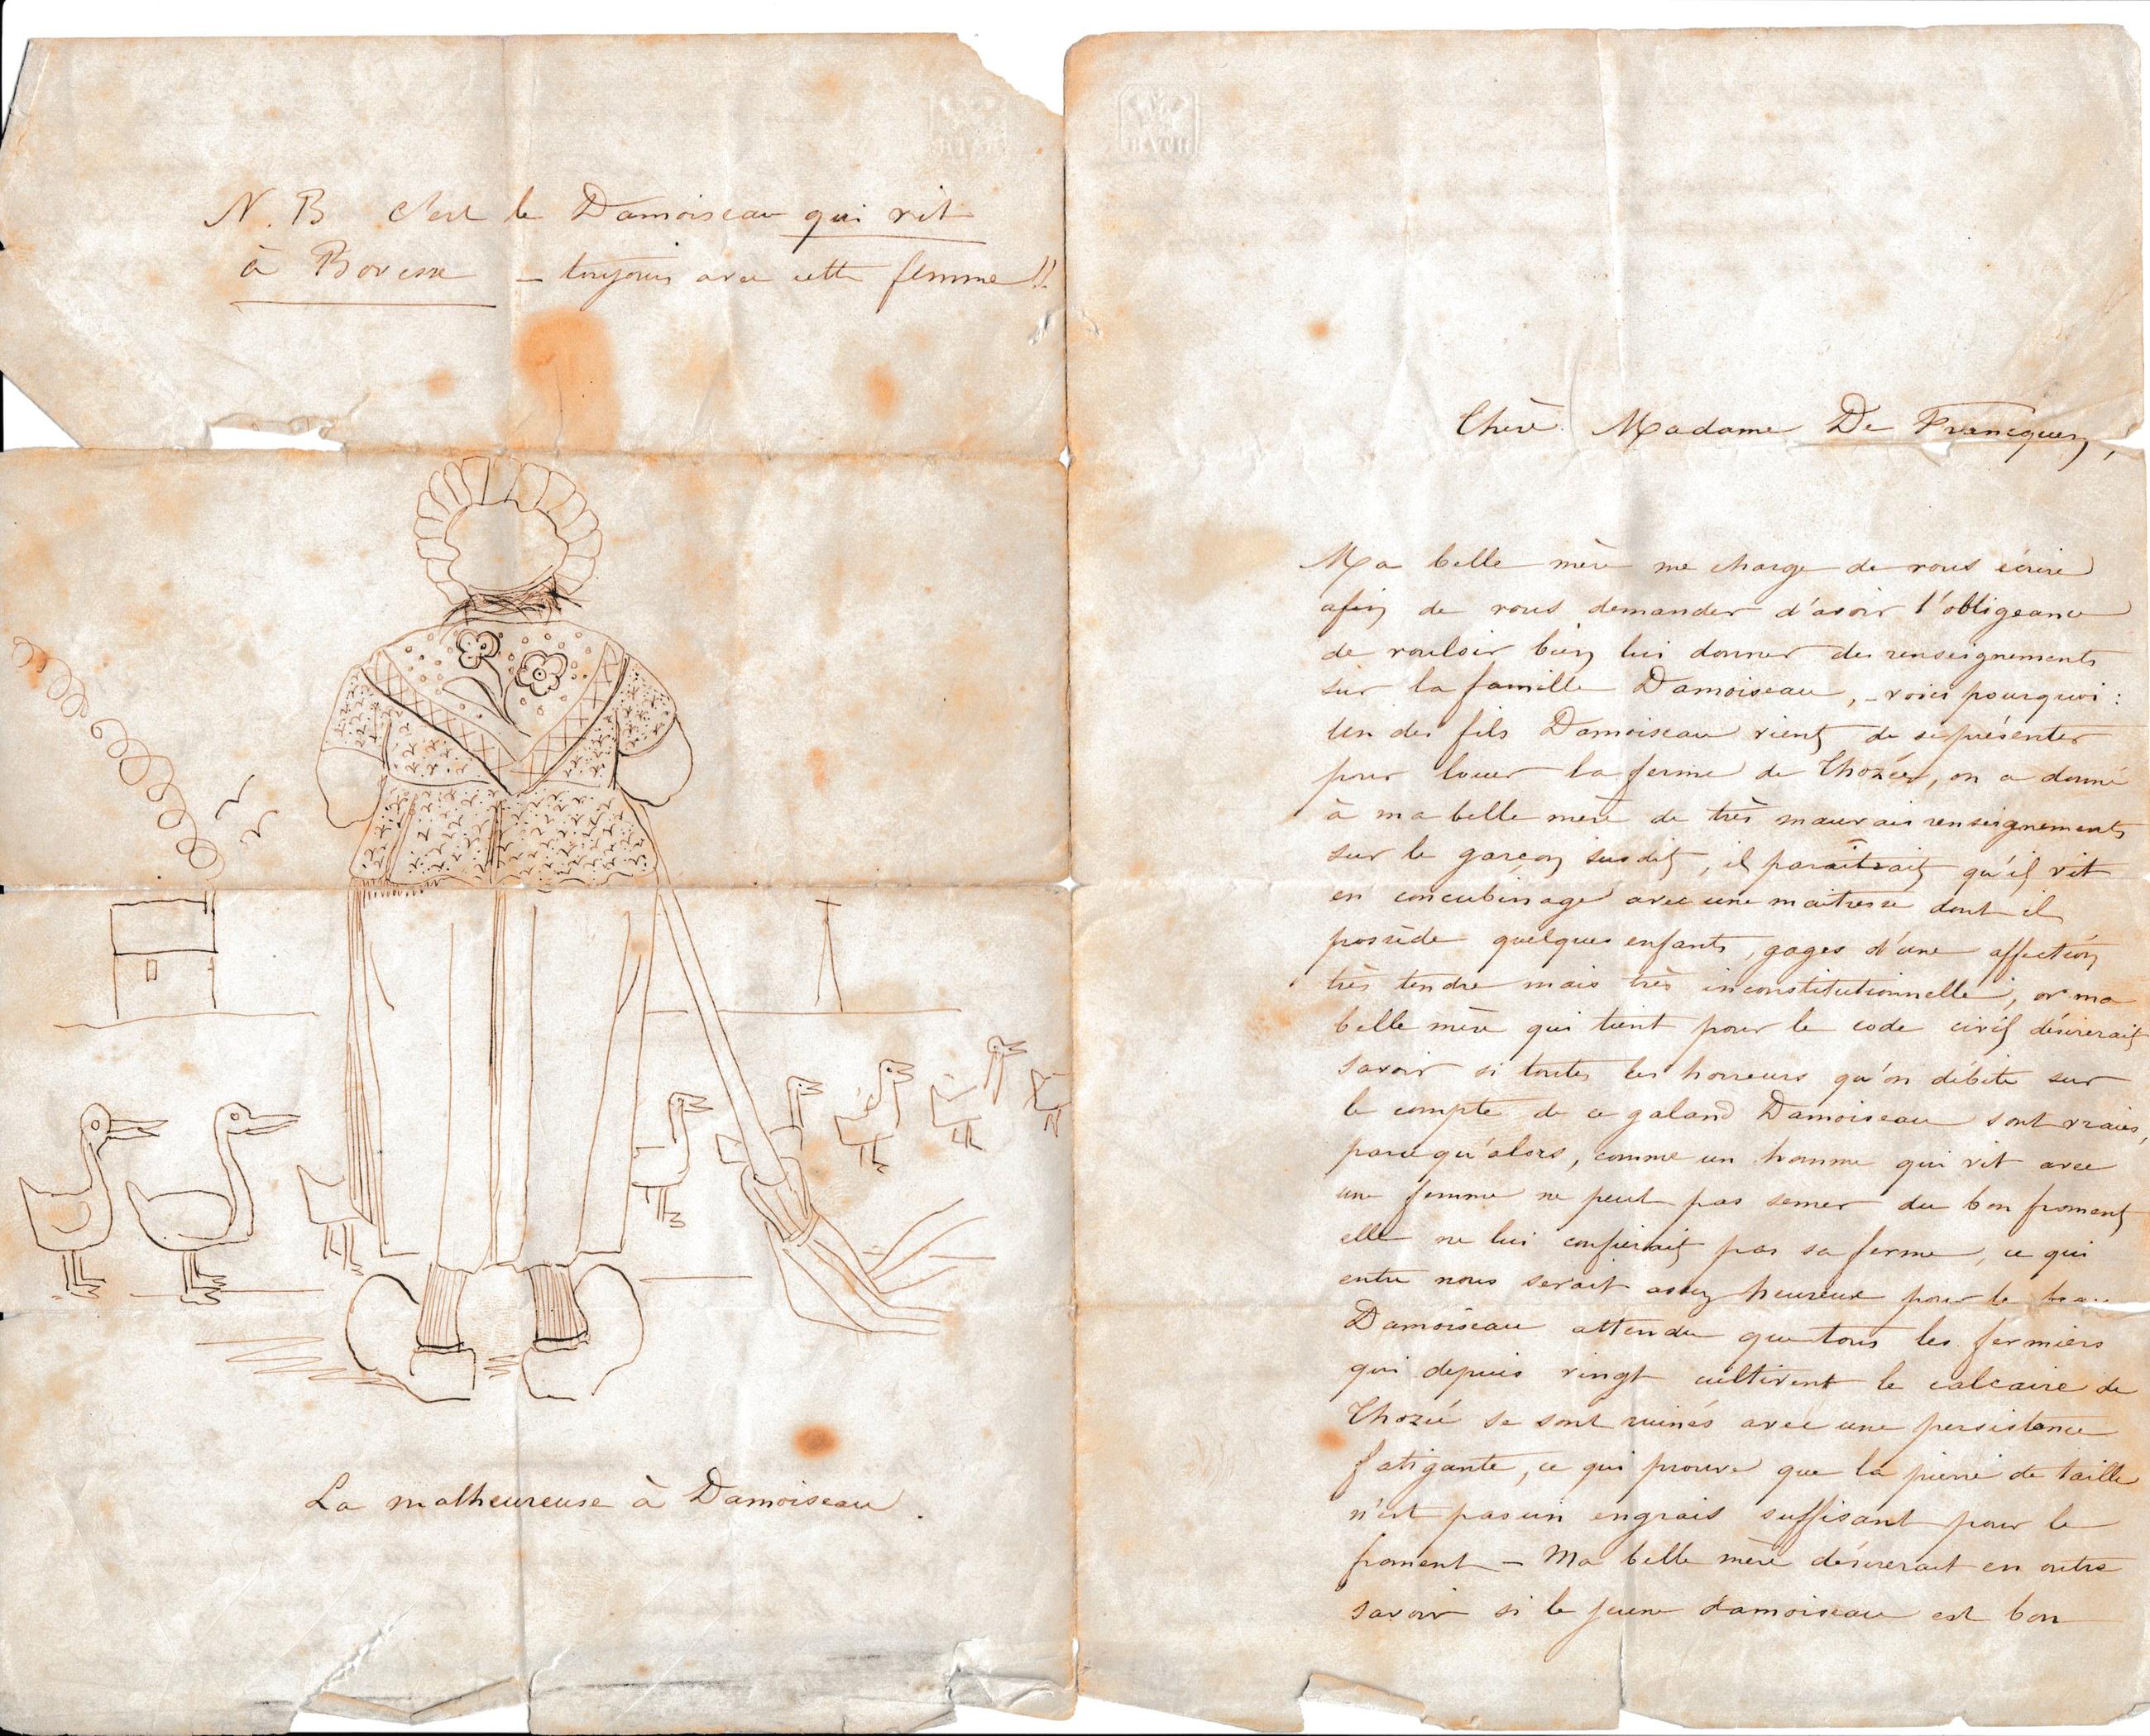 N. B c'est le Damoiseau qui vit
à Boresse – toujours avec cette femme !!
La malheureuse à Damoiseau.
BATH
Chère Madame De Francquen,
Ma belle mère me charge de vous écrire
afin de vous demander d'avoir l'obligeance
de vouloir bien lui donner des renseignements
sur la famille Damoiseau, – voici pourquoi :
Un des fils Damoiseau vient de se présenter
pour louer la ferme de Thozée, on a donné
à ma belle mère de très mauvais renseignements
sur le garçon susdit, il paraîtrait qu'il vit
en concubinage avec une maitresse dont il
possède quelques enfants, gages d'une affection
très tendre mais très inconstitutionnelle, or ma
belle mère qui tient pour le code civil désirerait
savoir si toutes les horreurs qu'on débite sur
le compte de ce galand Damoiseau sont vraies,
parcequ'alors, comme un homme qui vit avec
une femme ne peut pas semer du bon froment
elle ne lui confierait pas sa ferme, ce qui
entre nous serait assez heureux pour le
Damoiseau attendu que tous les fermiers
qui depuis vingt cultivent le calcaire de
Thozée se sont ruinés avec une persistance
fatigante, ce qui prouve que la pierre de taille
n'est pas un engrais suffisant pour le
froment – Ma belle mère désirerait en outre
savoir si le jeune damoiseau est bon